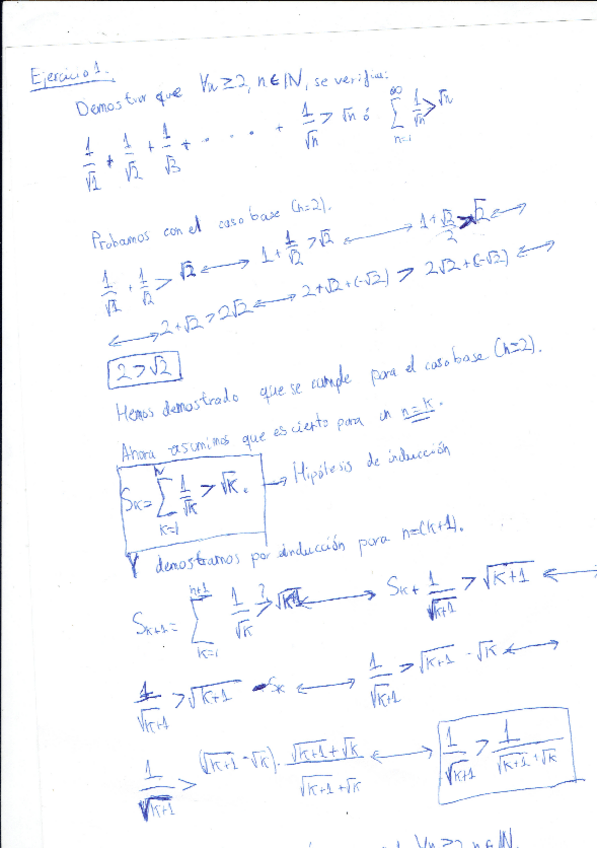 Ejercicio 1.
Demostrar que ∀n ≥ 2, n ∈ ℕ, se verifica:
1/√1 + 1/√2 + 1/√3 + · · · + 1/√n > √n ó ∑_{n=i}^{∞} 1/√n > √n
Probamos con el caso base (n=2).
1/√1 + 1/√2 > √2 ⟷ 1 + 1/√2 > √2 ⟷ 1 + √2/2 > √2 ⟷
⟷ 2+√2 > 2√2 ⟷ 2+√2+(-√2) > 2√2+(-√2) ⟷
2 > √2
Hemos demostrado que se cumple para el caso base (n=2).
Ahora asumimos que es cierto para un n=k.
S_k = ∑_{k=1}^{n} 1/√k > √k. → Hipótesis de inducción
Y demostramos por inducción para n=(k+1).
S_{k+1} = ∑_{k=i}^{n+1} 1/√k >? √k+1 ⟷ S_k + 1/√k+1 > √k+1 ⟷
1/√k+1 > √k+1 - S_k ⟷ 1/√k+1 > √k+1 - √k ⟷
1/√k+1 > (√k+1 - √k) · (√k+1 + √k)/(√k+1 + √k) ⟷ 1/√k+1 > 1/(√k+1 + √k)
∀n ≥ 2, n ∈ ℕ.